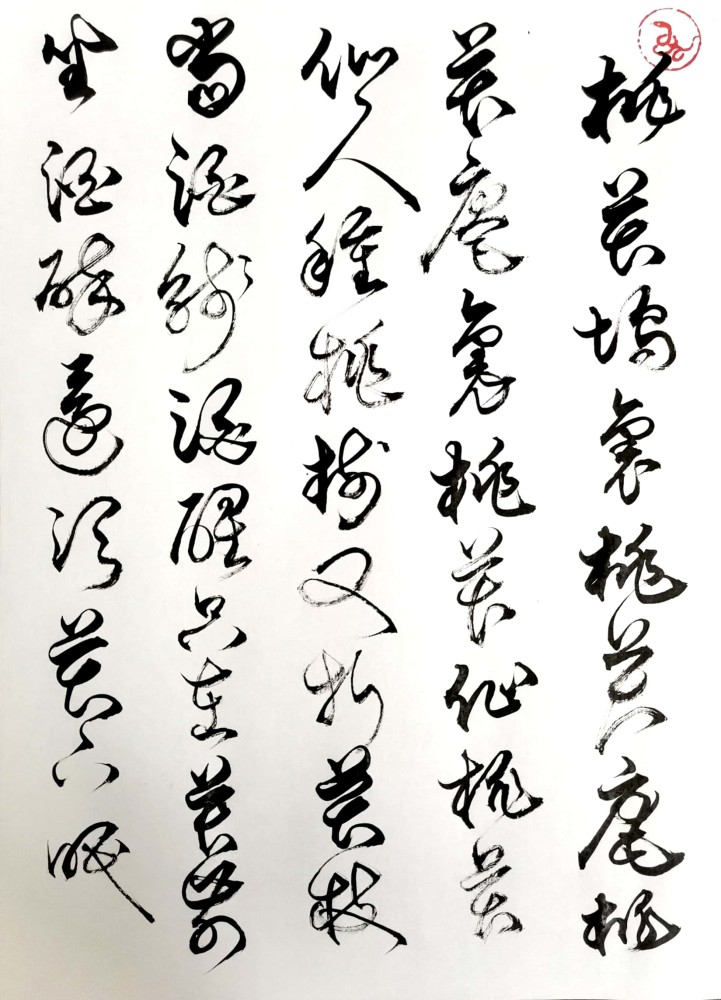 桃花塢裏桃花庵桃
花庵裏桃花仙桃花
仙人種桃樹又折花枝
當酒錢酒醒只在花前
坐酒醉還須花下眠